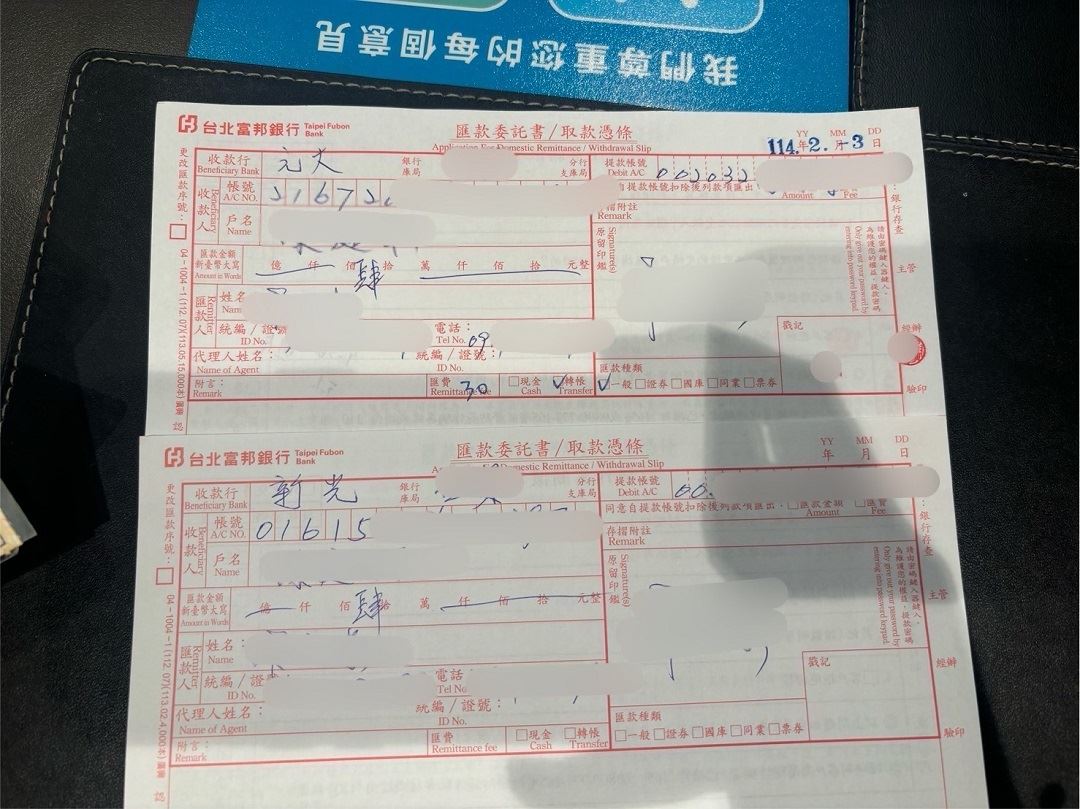 我們尊重您的每個意見
台北富邦銀行 Taipei Fubon Bank
匯款委託書/取款憑條
Application For Domestic Remittance / Withdrawal Slip
YY MM DD
114.年2.月-3日
收款行 元大 銀行庫局 分行支庫局
Beneficiary Bank
提款帳號
Debit A/C
收款人 Beneficiary
帳號
A/C NO.
自提款帳號扣除後列款項匯出
Amount Fee
戶名
Name
存摺附註
Remark
匯款金額
新臺幣大寫
Amount in Words
億 仟 佰 肆拾 萬 仟 佰 拾 元整
原留印鑑 Signature(s)
請由密碼鍵入器鍵入,
為維護您的權益,提款密碼
Only give out your password by
entering into password keypad
銀行存查
主管
匯款人 Remitter
姓名
Name
統編/證號
ID No.
電話:
Tel No. 09
戳記
經辦
代理人姓名:
Name of Agent
統編/證號:
ID No.
匯款種類
附言:
Remark
匯費 30
Remittance fee
□現金 ✓轉帳
Cash Transfer
✓一般 □證券 □國庫 □同業 □票券
驗印
更改匯款序號:□
04-1004-1 (112.07)
台北富邦銀行 Taipei Fubon Bank
匯款委託書/取款憑條
Domestic Remittance / Withdrawal Slip
YY MM DD
年 月 日
收款行 新光 銀行庫局 分行支庫局
Beneficiary Bank
提款帳號
Debit A/C
收款人 Beneficiary
帳號 01615
A/C NO.
同意自提款帳號扣除後列款項匯出:□匯款金額 □匯費
Amount Fee
戶名
Name
存摺附註
Remark
匯款金額
新臺幣大寫
Amount in Words
億 仟 佰 肆拾 萬 仟 佰 拾 元整
原留印鑑 Signature(s)
請由密碼鍵入器鍵入,
為維護您的權益,提款密碼
Only give out your password by
entering into password keypad
銀行存查
主管
匯款人 Remitter
姓名:
Name
統編/證
ID No.
電話
Tel No
戳記
經辦
代理人姓名:
Name of Agent
統編/證號:
ID No.
匯款種類
附言:
Remark
匯費
Remittance fee
□現金 □轉帳
Cash Transfer
□一般 □證券 □國庫 □同業 □票券
驗印
更改匯款序號:□
04-1004-1 (112.07)